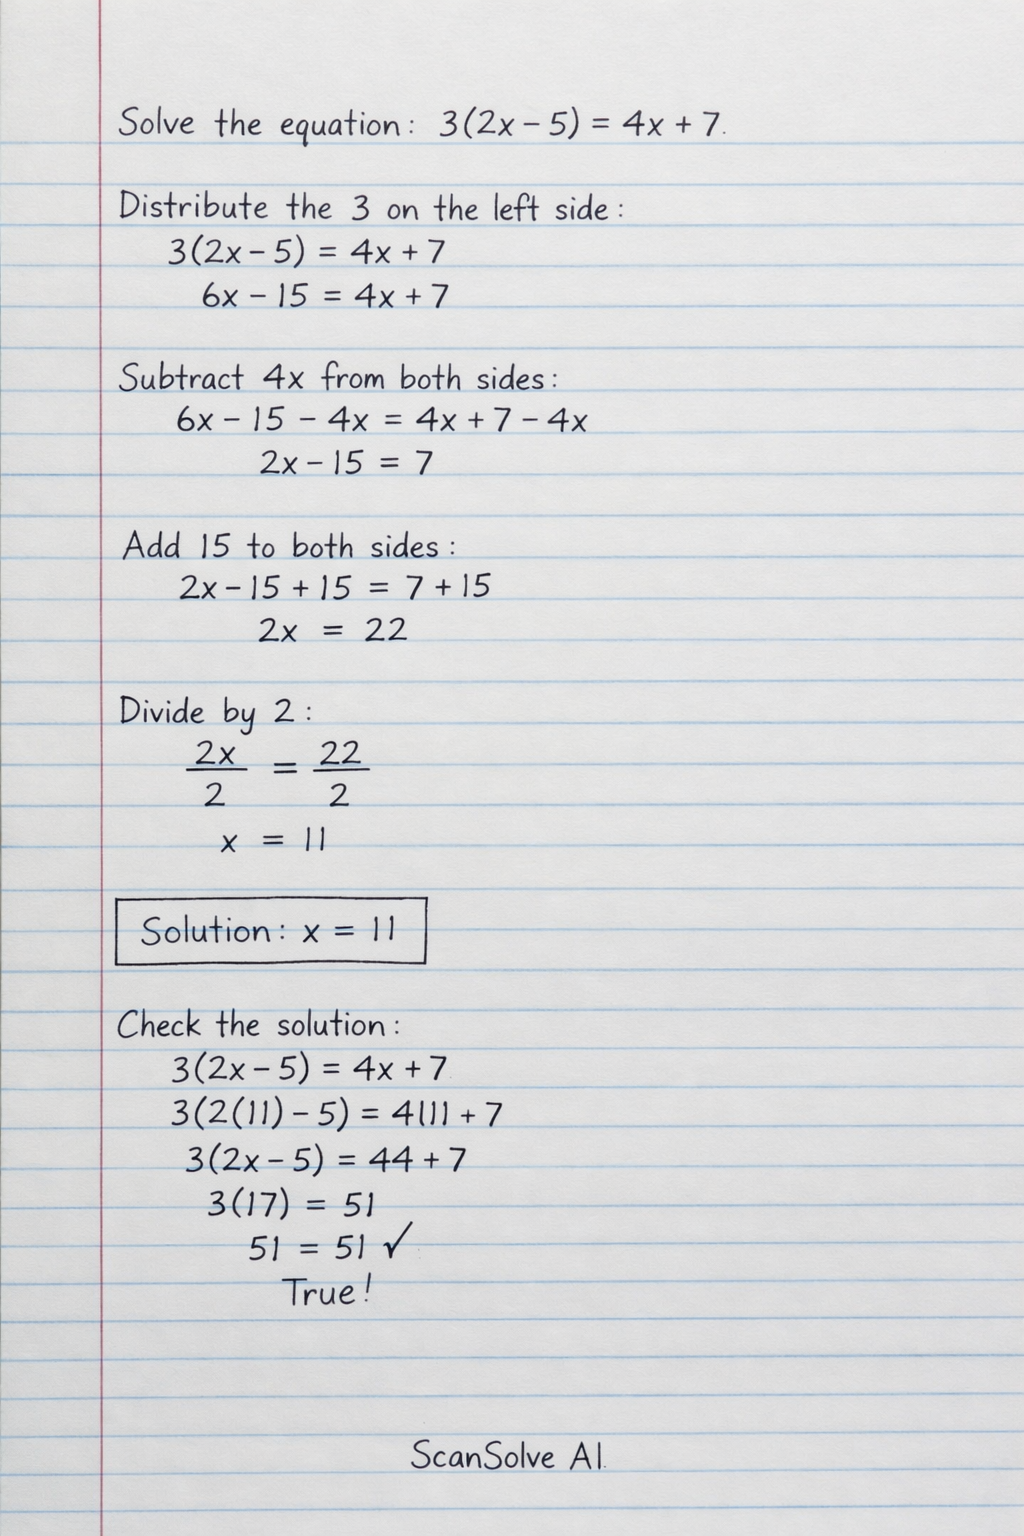 Solve the equation: 3(2x - 5) = 4x + 7.
Distribute the 3 on the left side:
3(2x - 5) = 4x + 7
6x - 15 = 4x + 7
Subtract 4x from both sides:
6x - 15 - 4x = 4x + 7 - 4x
2x - 15 = 7
Add 15 to both sides:
2x - 15 + 15 = 7 + 15
2x = 22
Divide by 2:
2x/2 = 22/2
x = 11
Solution: x = 11
Check the solution:
3(2x - 5) = 4x + 7
3(2(11) - 5) = 4111 + 7
3(2x - 5) = 44 + 7
3(17) = 51
51 = 51 ✓
True!
ScanSolve AI.